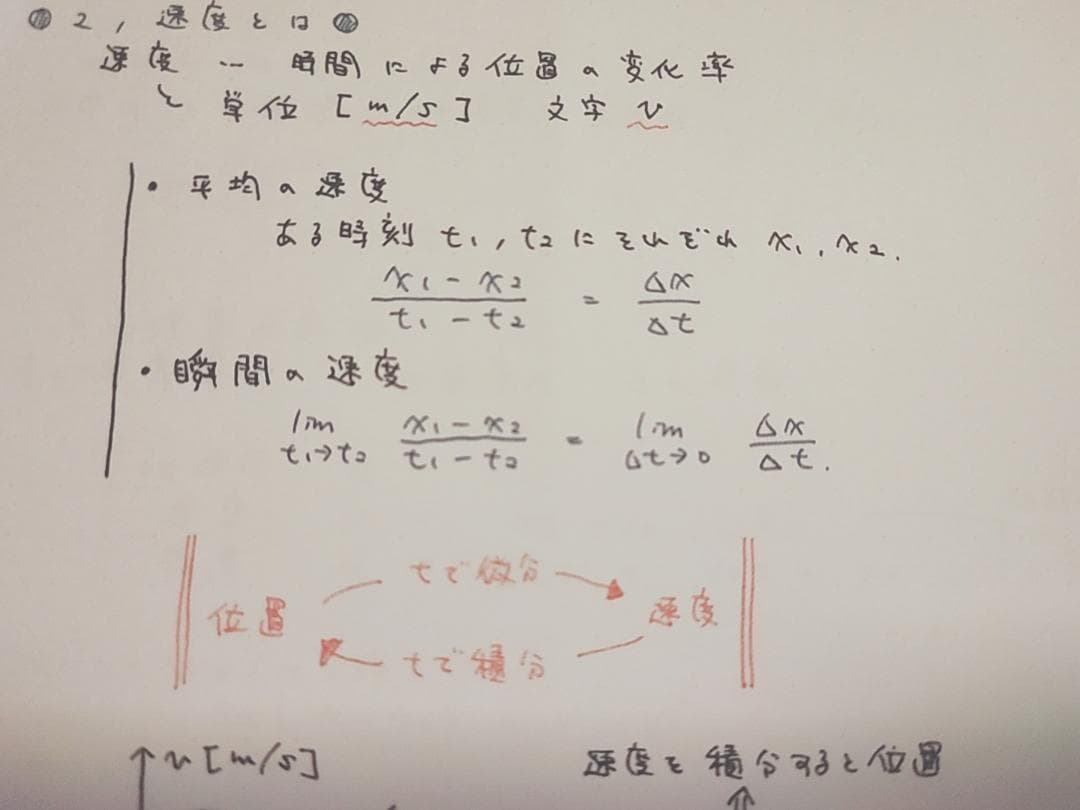 2, 速度とは
速度 … 時間による位置の変化率
単位 [m/s] 文字 v
・平均の速度
ある時刻 t₁, t₂にそれぞれ x₁, x₂.
x₁ - x₂ / t₁ - t₂ = Δx / Δt
・瞬間の速度
lim t₁→t₂ x₁ - x₂ / t₁ - t₂ = lim Δt→0 Δx / Δt.
tで微分
位置 速度
tで積分
v [m/s] 速度を積分すると位置